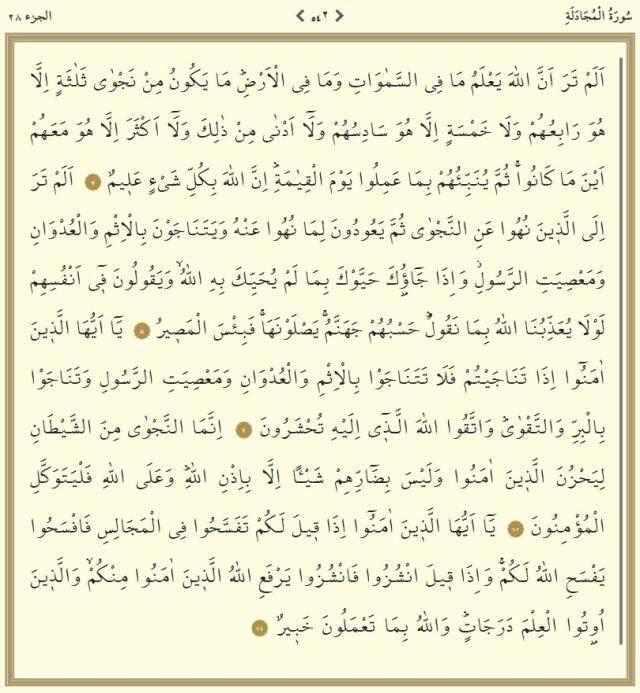 سُورَةُ الْمُجَادَلَةِ ٥٤٢ الجزء ٢٨
اَلَمْ تَرَ اَنَّ اللّٰهَ يَعْلَمُ مَا فِى السَّمٰوَاتِ وَمَا فِى الْاَرْضِۜ مَا يَكُونُ مِنْ نَجْوٰى ثَلٰثَةٍ اِلَّا
هُوَ رَابِعُهُمْ وَلَا خَمْسَةٍ اِلَّا هُوَ سَادِسُهُمْ وَلَٓا اَدْنٰى مِنْ ذٰلِكَ وَلَٓا اَكْثَرَ اِلَّا هُوَ مَعَهُمْ
اَيْنَ مَا كَانُواۚ ثُمَّ يُنَبِّئُهُمْ بِمَا عَمِلُوا يَوْمَ الْقِيٰمَةِۜ اِنَّ اللّٰهَ بِكُلِّ شَىْءٍ عَلٖيمٌ ٧ اَلَمْ تَرَ
اِلَى الَّذٖينَ نُهُوا عَنِ النَّجْوٰى ثُمَّ يَعُودُونَ لِمَا نُهُوا عَنْهُ وَيَتَنَاجَوْنَ بِالْاِثْمِ وَالْعُدْوَانِ
وَمَعْصِيَتِ الرَّسُولِۘ وَاِذَا جَٓاؤُ۫كَ حَيَّوْكَ بِمَا لَمْ يُحَيِّكَ بِهِ اللّٰهُۙ وَيَقُولُونَ فٖٓى اَنْفُسِهِمْ
لَوْلَا يُعَذِّبُنَا اللّٰهُ بِمَا نَقُولُۜ حَسْبُهُمْ جَهَنَّمُۚ يَصْلَوْنَهَاۚ فَبِئْسَ الْمَصٖيرُ ٨ يَٓا اَيُّهَا الَّذٖينَ
اٰمَنُٓوا اِذَا تَنَاجَيْتُمْ فَلَا تَتَنَاجَوْا بِالْاِثْمِ وَالْعُدْوَانِ وَمَعْصِيَتِ الرَّسُولِ وَتَنَاجَوْا
بِالْبِرِّ وَالتَّقْوٰىۜ وَاتَّقُوا اللّٰهَ الَّـذٖٓى اِلَيْهِ تُحْشَرُونَ ٩ اِنَّمَا النَّجْوٰى مِنَ الشَّيْطَانِ
لِيَحْزُنَ الَّذٖينَ اٰمَنُوا وَلَيْسَ بِضَٓارِّهِمْ شَيْـًٔا اِلَّا بِاِذْنِ اللّٰهِۜ وَعَلَى اللّٰهِ فَلْيَتَوَكَّلِ
الْمُؤْمِنُونَ ١٠ يَٓا اَيُّهَا الَّذٖينَ اٰمَنُٓوا اِذَا قٖيلَ لَكُمْ تَفَسَّحُوا فِى الْمَجَالِسِ فَافْسَحُوا
يَفْسَحِ اللّٰهُ لَكُمْۚ وَاِذَا قٖيلَ انْشُزُوا فَانْشُزُوا يَرْفَعِ اللّٰهُ الَّذٖينَ اٰمَنُوا مِنْكُمْۙ وَالَّذٖينَ
اُو۫تُوا الْعِلْمَ دَرَجَاتٍۜ وَاللّٰهُ بِمَا تَعْمَلُونَ خَبٖيرٌ ١١